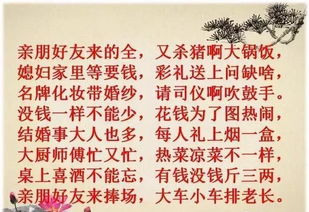 亲朋好友来的全，又杀猪啊大锅饭，
媳妇家里等要钱，彩礼送上问缺啥，
名牌化妆带婚纱，请司仪啊吹鼓手。
没钱一样不能少，花钱为了图热闹，
结婚事大人也多，每人礼上烟一盒，
大厨师傅忙又忙，热菜凉菜不一样，
桌上喜酒不能忘，有钱没钱斤三两，
亲朋好友来捧场，大车小车排老长。